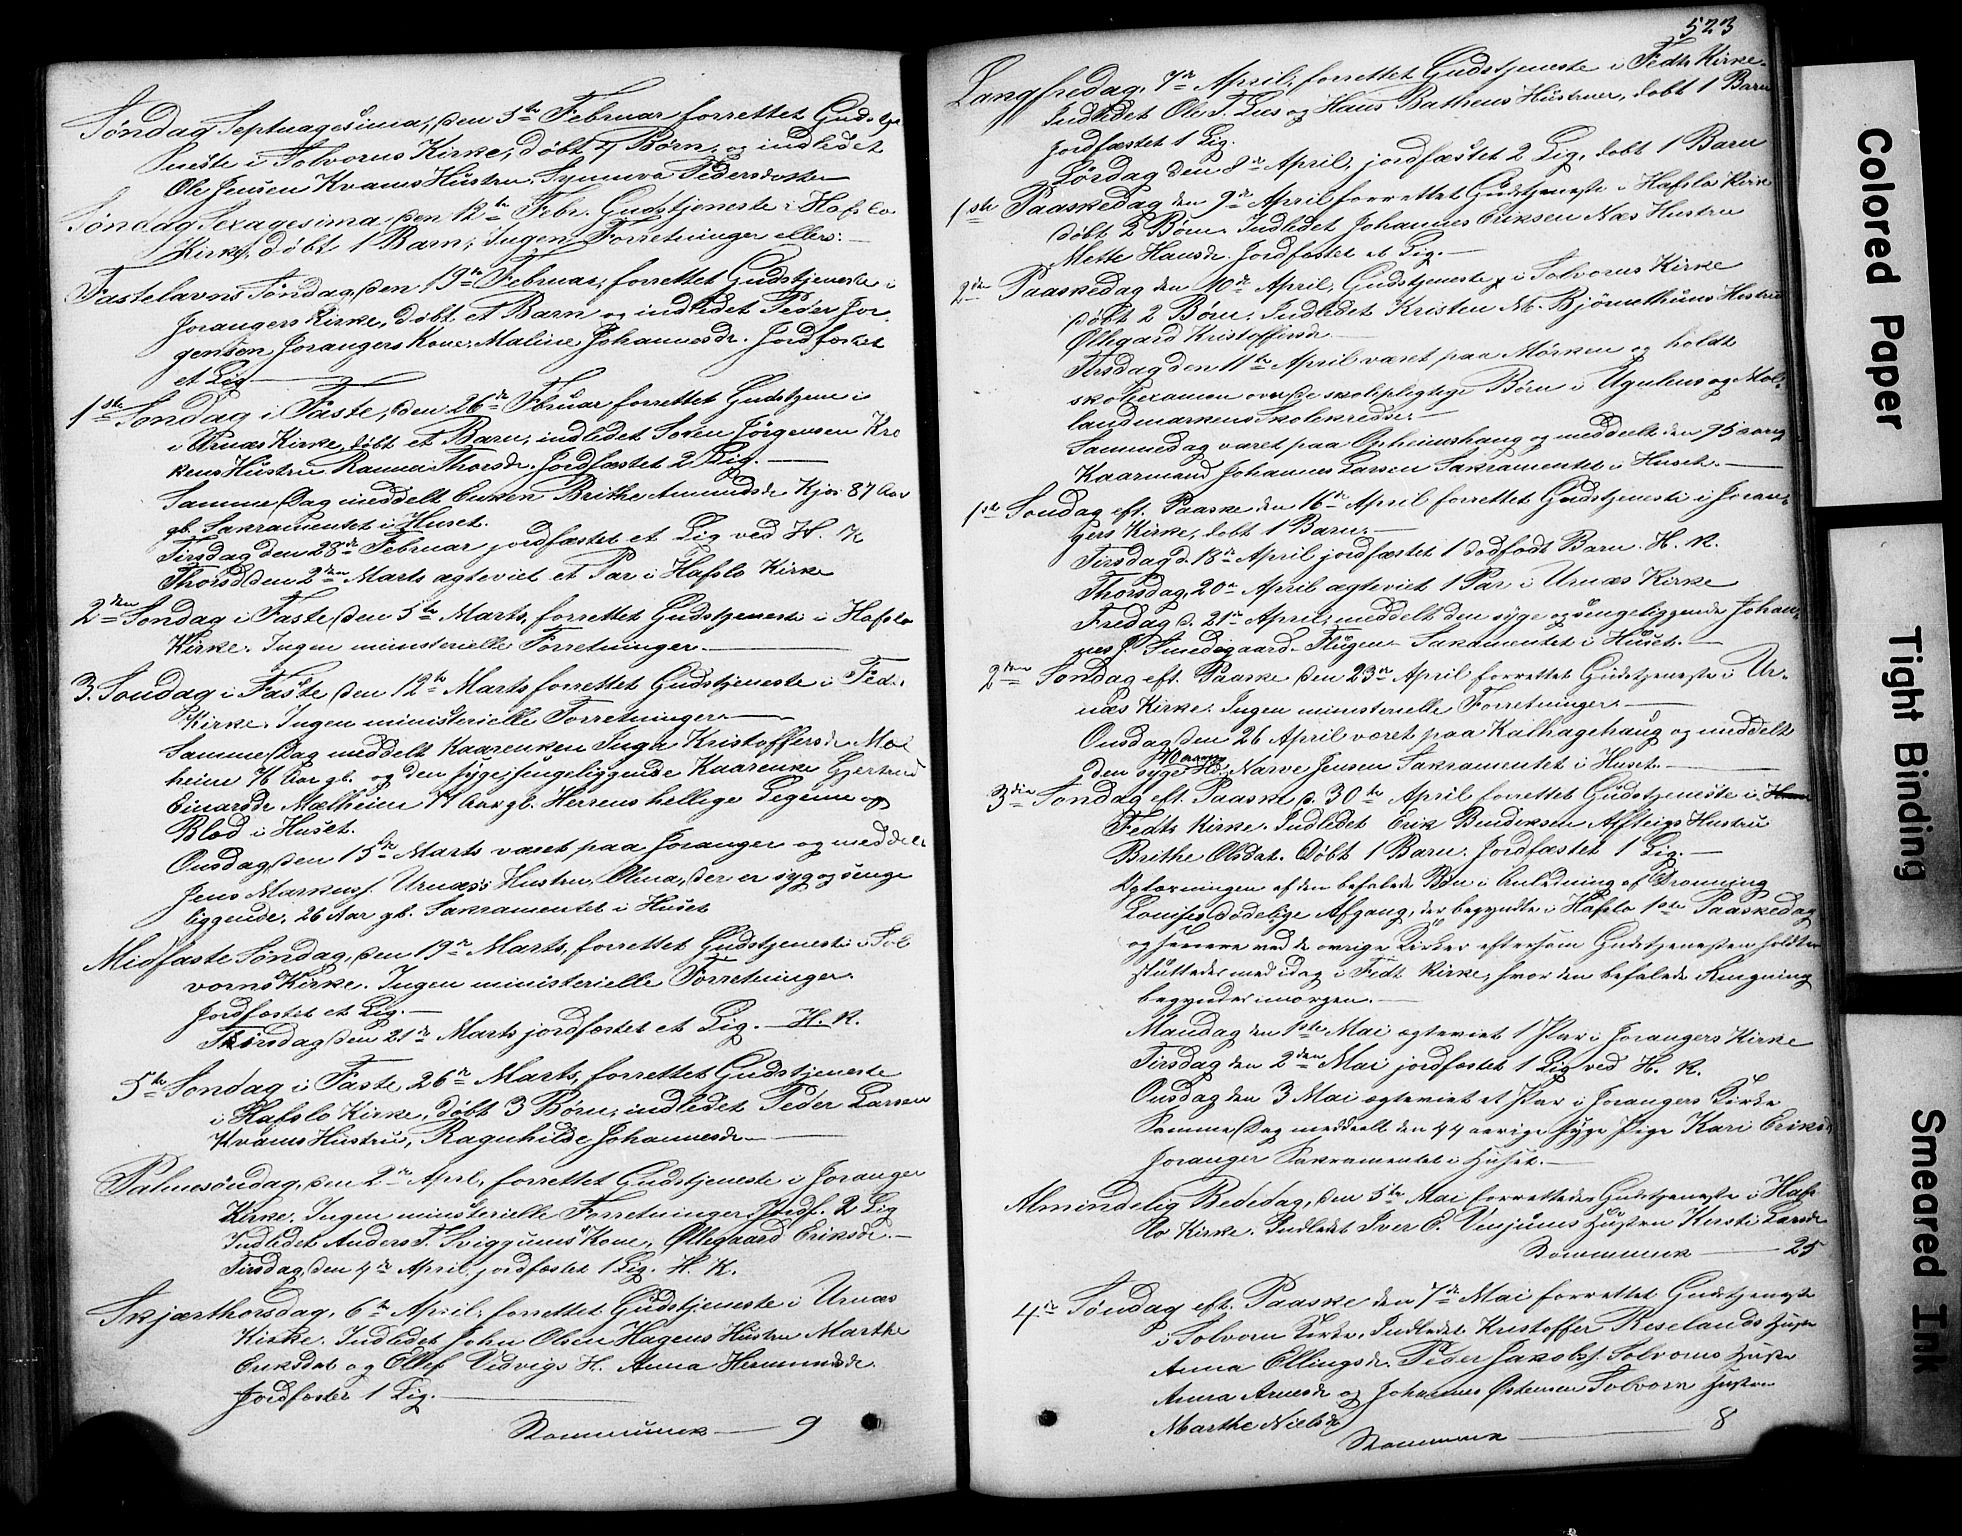 Søndag Septuagesima, den 5te Februar forrettet Gudstje
neste i Solvorns Kirke, døbt Børn, og indledet
Ole Jensen Kvams Hustru, Synneva Pedersdatter
Søndag Sexagesima den 12te Febr. Gudstjeneste i Hafslo
Kirke, døbt 1 Barn; Ingen Forretninger ellers.
Fastelavns Søndag, den 19de Februar, forrettet Gudstjeneste i
Jorangers Kirke, døbt et Barn og indledet Peder Jør-
gensen Jorangers Kone, Maline Johannesdr. Jordfæstet
et Lig.
1ste Søndag i Faste, den 26de Februar forrettet Gudstjene
i Urnæs Kirke, døbt et Barn, indledet Søren Jørgensen Kro
kens Hustru Thorsdr. Jordfæstet 2 Lig.
Samme Dag meddelt Enken Brithe Amundsdr Kjos 87 Aar
gl. Sakramentet i Huset.
Tirsdag den 28de Februar jordfæstet et Lig ved H. K
Thorsd. den 2den Marts ægteviet et Par i Hafslo Kirke
2den Søndag i Faste den 5te Marts, forrettet Gudstjeneste i Hafslo
Kirke. Ingen ministerielle Forretninger.
3. Søndag i Faste den 12te Marts forrettet Gudstjeneste i Fedts
Kirke. Ingen ministerielle Forretninger
Samme Dag meddelt Kaarenken Inga Kristoffersdr. Mæl
heim 76 Aar gl. og den syge, sengeliggende Kaarenke Gjertrud
Einarsdr Mælheim Aar gl. Herrens hellige Legeme og
Blod i Huset.
Onsdag, den 15de Marts været paa Joranger og meddelt
Jens Markuss. Urnæs's Hustru, der er syg og senge
liggende, 26 Aar gl. Sakramentet i Huset
Midfaste Søndag, den 19de Marts, forrettet Gudstjeneste i Sol
vorns Kirke. Ingen ministerielle Forretninger.
Jordfæstet et Lig.
Tirsdag den 21de Marts jordfæstet et Lig. H. K.
5te Søndag i Faste 26de Marts, forrettet Gudstjeneste
i Hafslo Kirke, døbt 3 Børn, indledet Peder Larsen
Kvams Hustru, Ragnhilde Johannesdr.
Palmesøndag, den 2den April, forrettet Gudstjeneste i Joranger
Kirke. Ingen ministerielle Forretninger. Jordf. 2 Lig
Indledet Anders T. Sviggums Kone, Øllegaard Eriksdr.
Tirsdag, den 4de April, jordfæstet 1 Lig. H. K.
Skjærthorsdag, 6te April, forrettet Gudstjeneste i Urnæs
Kirke. Indledet John Olsen Hagens Hustru Marthe
Eriksdat og Ellef Vedvigs H. Anna Hermundsdr.
Jordfæstet 1 Lig.
Kommunik 9
523
Langfredag, 7de April, forrettet Gudstjeneste i Fedts Kirke.
Indledet Ole T. og Hans Hustruer, døbt 1 Barn
Jordfæstet 1 Lig.
Lørdag den 8de April, jordfæstet 2 Lig, døbt 1 Barn
1ste Paaskedag den 9de April forrettet Gudstjeneste i Hafslo Kirk
døbt 2 Børn. Indledet Johannes Eriksen Næs Hustru
Mette Hansdr. Jordfæstet et Lig.
2den Paaskedag den 10de April, Gudstjeneste i Solvorns Kirke
døbt 2 Børn. Indledet Kristen M. Bjørnethuns Hustru
Øllegard Kristoffersdr.
Tirsdag den 11te April været paa Mørken og holdt
skoleexamen over de skolepligtige Børn i Ugulens og Mol-
landmarkens Skolekredse.
Samme dag været paa Opheimshaug og meddelt den 95 aarig
Kaarmand Johannes Larsen Sakramentet i Huset.
1ste Søndag eft. Paaske den 16de April forrettet Gudstjeneste i Joran-
gers Kirke, døbt 1 Barn.
Tirsdag d. 18de April jordfæstet 1 dødfødt Barn. H. K.
Thorsdag, 20de April ægteviet 1 Par i Urnæs Kirke
Fredag d. 21de April, meddelt den syge og sengeliggende Johan-
nes J. Smedegaard Flugen Sakramentet i Huset.
2den Søndag eft. Paaske den 23de April forrettet Gudstjeneste i Ur-
næs Kirke. Ingen ministerielle Forretninger.
Onsdag den 26 April været paa Kalhagehaug og meddelt
den syge Narve Jensen Sakramentet i Huset.
3die Søndag eft. Paaske d. 30te April forrettet Gudstjeneste i
Fedts Kirke. Indledet Erik Bendiksen Alsteigs Hustru
Brithe Olsdat. Døbt 1 Barn. Jordfæstet 1 Lig.
af den befalede Bøn i Anledning af Dronning
Louises dødelige Afgang, der begyndte i Hafslo 1ste Paaskedag
og senere ved de øvrige Kirker eftersom Gudstjenesten holdtes
sluttedes med idag i Fedt Kirke, hvor den befalede Ringning
begynder imorgen.
Mandag den 1ste Mai ægteviet 1 Par i Jorangers Kirke
Tirsdag den 2den Mai jordfæstet 1 Lig ved H. K.
Onsdag den 3 Mai ægteviet et Par i Jorangers Kirke
Samme Dag meddelt den 44 aarige syge Pige Kari Eriksd
Joranger Sakramentet i Huset.
Almindelig Bededag, den 5te Mai forrettedes Gudstjeneste i Haf-
slo Kirke. Indledt Iver E. Venjums Hustru Kersti Larsdr
Kommunik 25
4de Søndag eft. Paaske den 7de Mai forrettet Gudstjeneste
i Solvorn Kirke, Indledet Kristoffer Beselands Hustru
Anna Ellingsdr. Peder Jakobss. Solvorns Hustru
Anna Arnesdr og Johannes Østensen Solvorn Hustru
Marthe Nielsdr
Kommunik 8
Colored Paper
Tight Binding
Smeared Ink